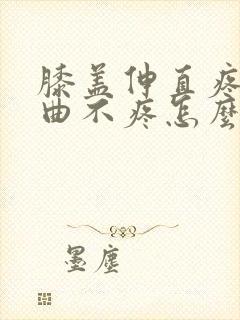 膝盖伸直疼
曲不疼怎麼
墨塵